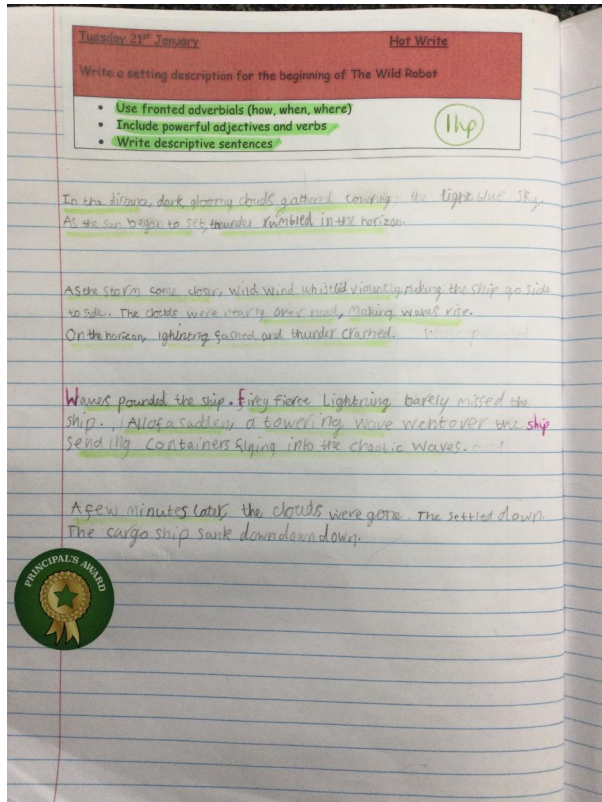 Tuesday 21st January Hot Write
Write a setting description for the beginning of The Wild Robot
• Use fronted adverbials (how, when, where)
• Include powerful adjectives and verbs
• Write descriptive sentences
1hp
In the distance, dark gloomy clouds gathered covering the light blue sky.
As the sun began to set, thunder rumbled in the horizon.
As the storm come closer, wild wind whistled violently making the ship go side
to side. The clouds were nearly over head, making waves rise.
On the horizon, lghining fashed and thunder crashed.
Waves pounded the ship. Firey fierce Lightning barely missed the
ship. All of a sudden, a towering wave went over the ship
sending containers flying into the chaotic waves.
A few minutes later, the clouds were gone. The settled down.
The cargo ship sank down down down.
PRINCIPAL'S AWARD